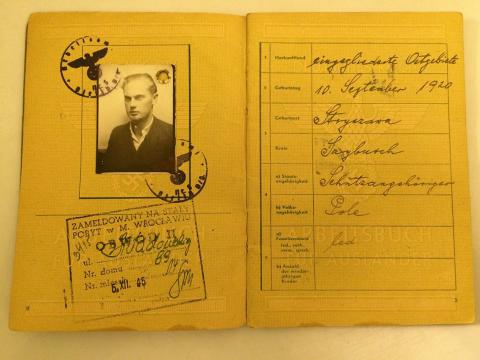 ZAMELDOWANY NA STAŁY
POBYT w M. WROCŁAWIU
OBWÓD II
ul.
Nr. domu 69
Nr. mieszk.
6. XII. 45
Herkunftsland eingegliederte Ostgebiete
Geburtstag 10. September 1920
Geburtsort Stryszawa
Kreis Saybusch
a) Staatsangehörigkeit Schutzangehöriger
b) Volkszugehörigkeit Pole
a) Familienstand led., verh., verw., gesch. led
b) Anzahl der minderjährigen Kinder